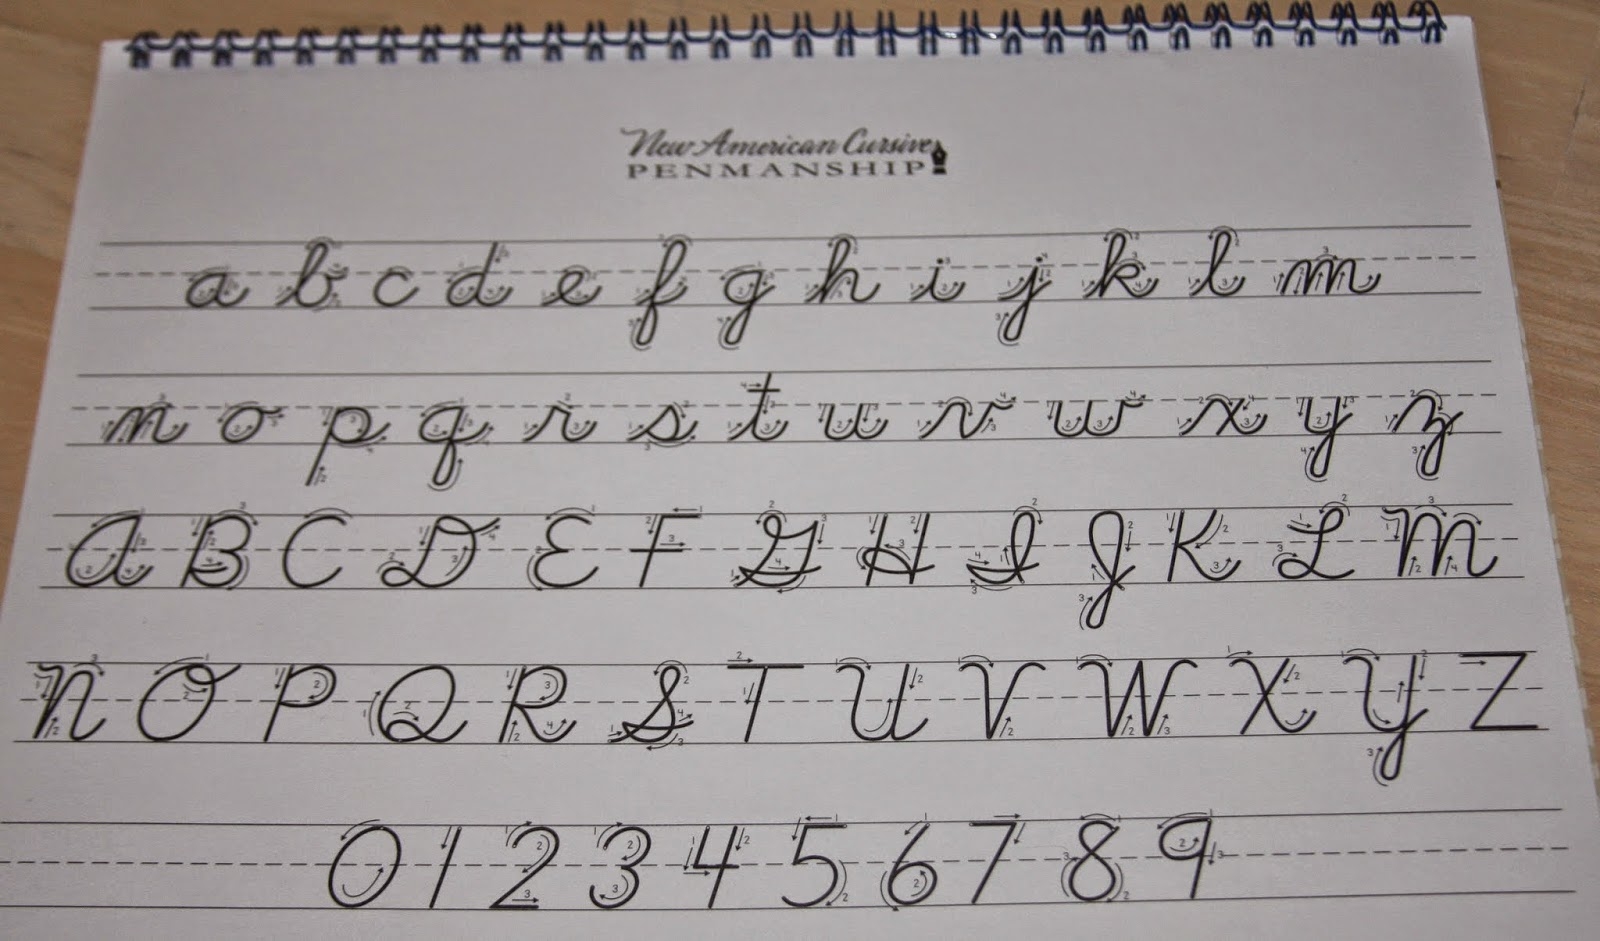 New American Cursive
PENMANSHIP
a b c d e f g h i j k l m
n o p q r s t u v w x y z
A B C D E F G H I J K L M
N O P Q R S T U V W X Y Z
0 1 2 3 4 5 6 7 8 9